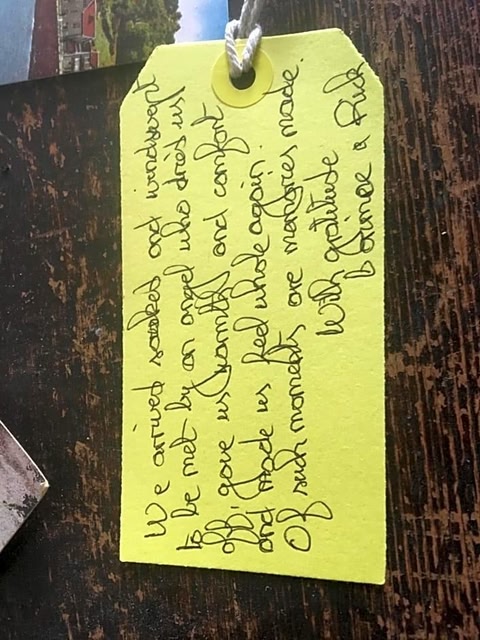 We arrived soaked and windswept
to be met by an angel who dried us
off, gave us warmth and comfort
and made us feel whole again.
Of such moments are memories made.
With gratitude
Lorinee & Rich